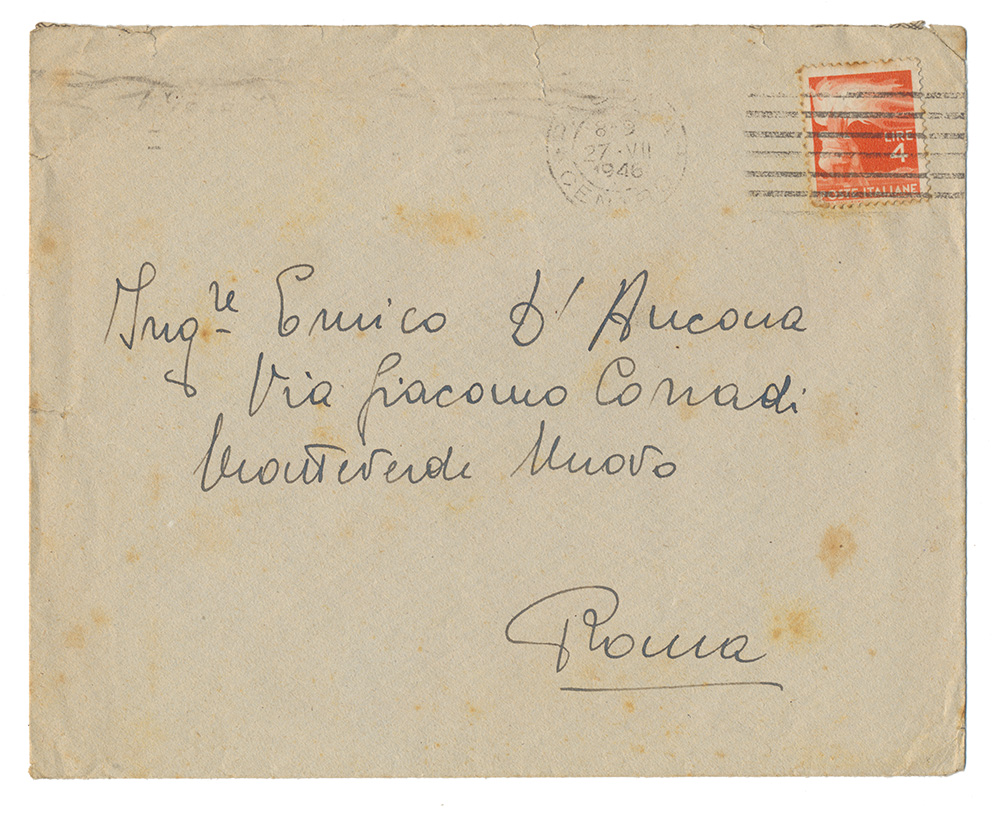 8-9
27·VII
1946
CENTR
LIRE
4
POSTE ITALIANE
Ing.re Enrico D'Ancona
Via Giacomo Corradi
Monteverde Nuovo
Roma